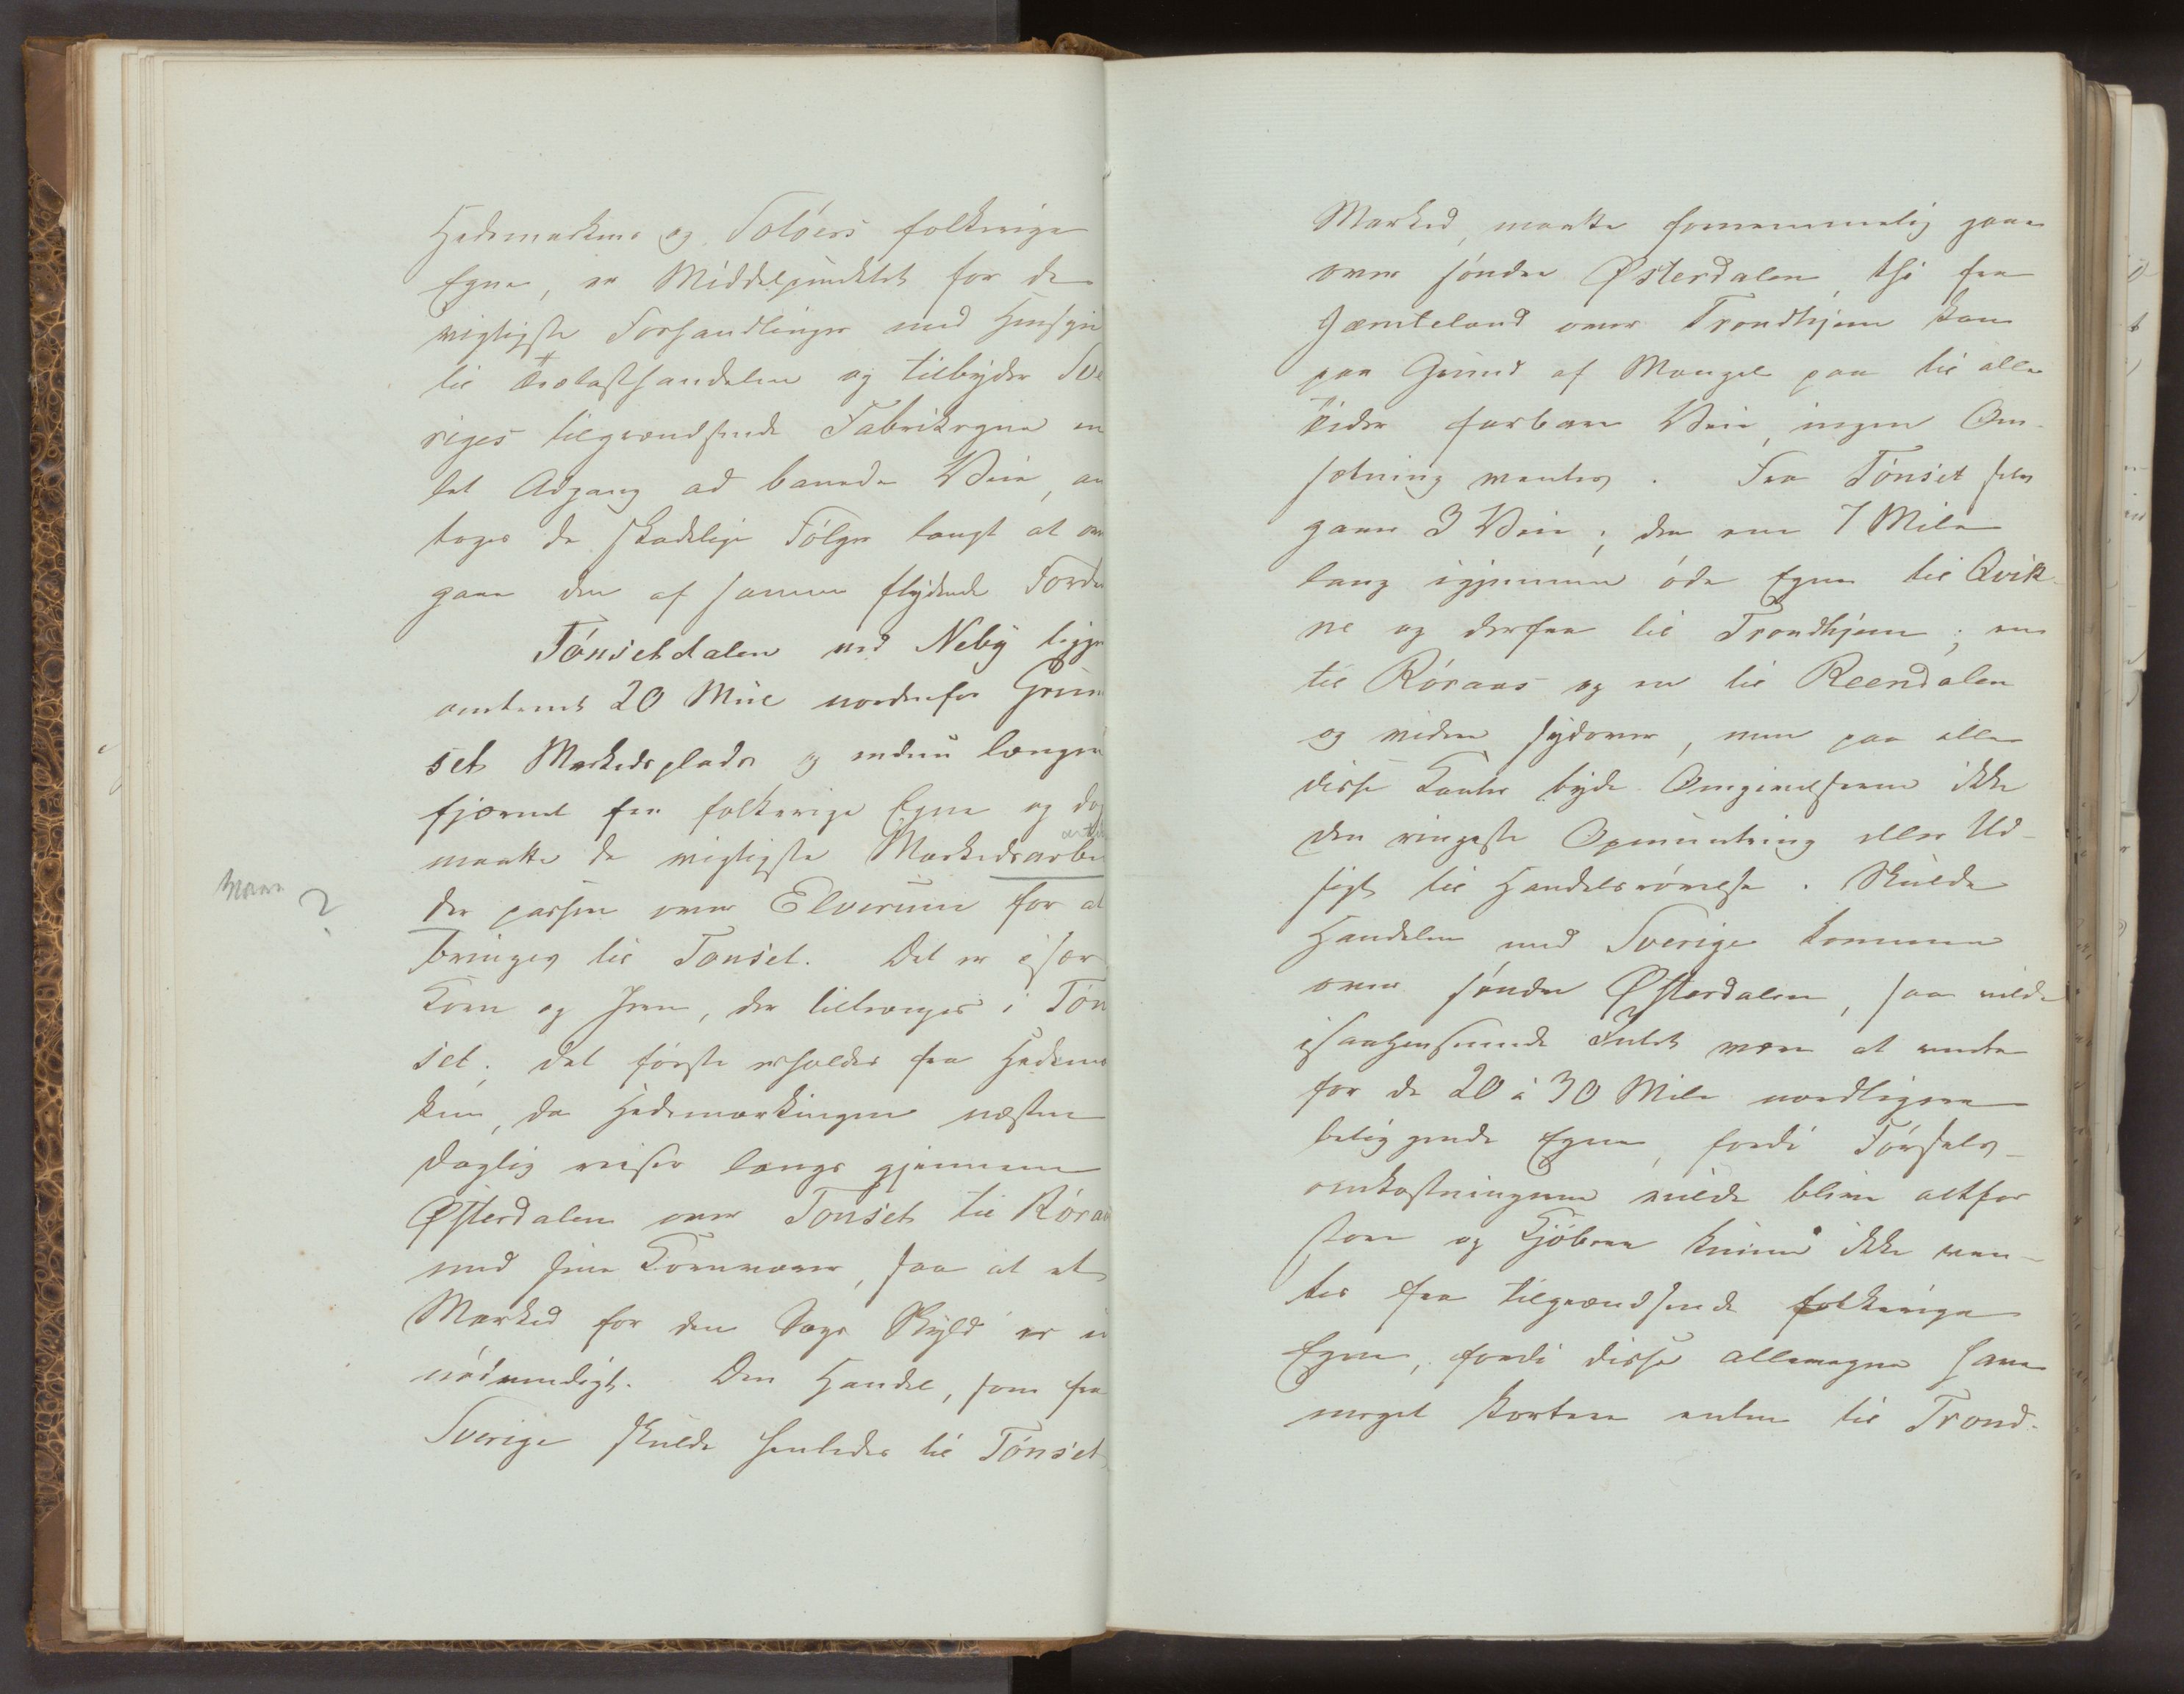 Hedemarkens og Solöers folkerige
Egne, er Middelpunktet for de
vigtigste Forhandlinger med Hensyn
til Trælasthandelen og tilbyder Sve
riges tilgrændsende Fabrikegne en
let Adgang ad banede Veie, an
tages de skadelige Fölger langt at over
gaae den af samme flydende Forde
Tönsetdalen ved Neby ligge
omtrent 20 Miil nordenfor Grun
set Markedsplads og endnu længere
fjærnet fra folkerige Egne og dog
maatte de vigtigste Markedsarbei
artik
Mærk ?
der passere over Elverum for at
bringes til Tönset. Det er især
Korn og Jern, der tiltrænges i Tön
set; det förste erholdes fra Hedemar
ken, da Hedemarkingen næsten
daglig reiser langs gjennem
Østerdalen over Tönset til Röraas
med sine Kornvarer, saa at et
Marked for den Sags Skyld er u
nödvendigt. Den Handel, som fra
Sverige skulde henledes til Tönset
Marked, maatte fornemmelig gaae
over söndre Østerdalen, thi fra
Jæmteland over Trondhjem kan
paa Grund af Mangel paa til alle
Tider farbare Veie, ingen Om-
sætning ventes. Fra Tönset selv
gaaer 3 Veie; den ene 7 Mile
lang igjennem öde Egne til Qvik-
ne og derfra til Trondhjem; en
til Röraas og en til Reendalen
og videre sydover, men paa alle
disse Kanter byde Omgivelserne ikke
den ringeste Opmuntring eller Ud-
sigt til Handelsrörelse. Skulde
Handelen med Sverige komme
over söndre Østerdalen, saa vilde
isaahenseende Intet være at vente
for de 20 à 30 Mile nordligere
beliggende Egne, fordi Försels-
omkostningerne vilde blive altfor
store og Kjöbere kunne ikke ven-
tes fra tilgrændsende folkerige
Egne, fordi disse allevegne have
meget kortere enten til Trond-